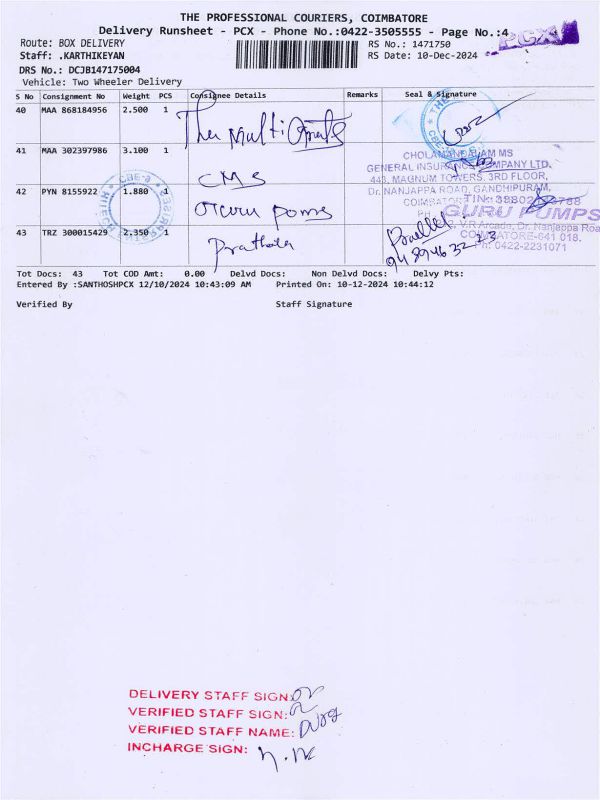 THE PROFESSIONAL COURIERS, COIMBATORE
Delivery Runsheet - PCX - Phone No.:0422-3505555 - Page No.:4
PCX
Route: BOX DELIVERY
RS No.: 1471750
Staff: .KARTHIKEYAN
RS Date: 10-Dec-2024
DRS No.: DCJB147175004
Vehicle: Two Wheeler Delivery
S No Consignment No Weight PCS Consignee Details Remarks Seal & Signature
40 MAA 868184956 2.500 1
The Multi
41 MAA 302397986 3.100 1 CMS
CHOLAMANDALAM MS
GENERAL INSURANCE COMPANY LTD,
443, MAGNUM TOWERS, 3RD FLOOR,
Dr. NANJAPPA ROAD, GANDHIPURAM,
42 PYN 8155922 1.880
CBE-9
GURU PUMPS
V.R Arcade, Dr. Nanjappa Roa
COIMBATORE-641 018.
Ph: 0422-2231071
43 TRZ 300015429 2.350 1
Tot Docs: 43 Tot COD Amt: 0.00 Delvd Docs: Non Delvd Docs: Delvy Pts:
Entered By :SANTHOSHPCX 12/10/2024 10:43:09 AM Printed On: 10-12-2024 10:44:12
Verified By Staff Signature
DELIVERY STAFF SIGN:
VERIFIED STAFF SIGN:
VERIFIED STAFF NAME:
INCHARGE SIGN: